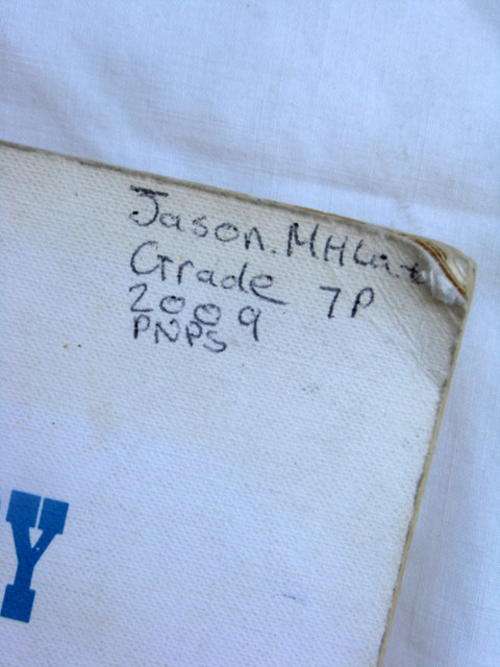 Jason. MHLat
Grade 7P
2009
PNPS
Y